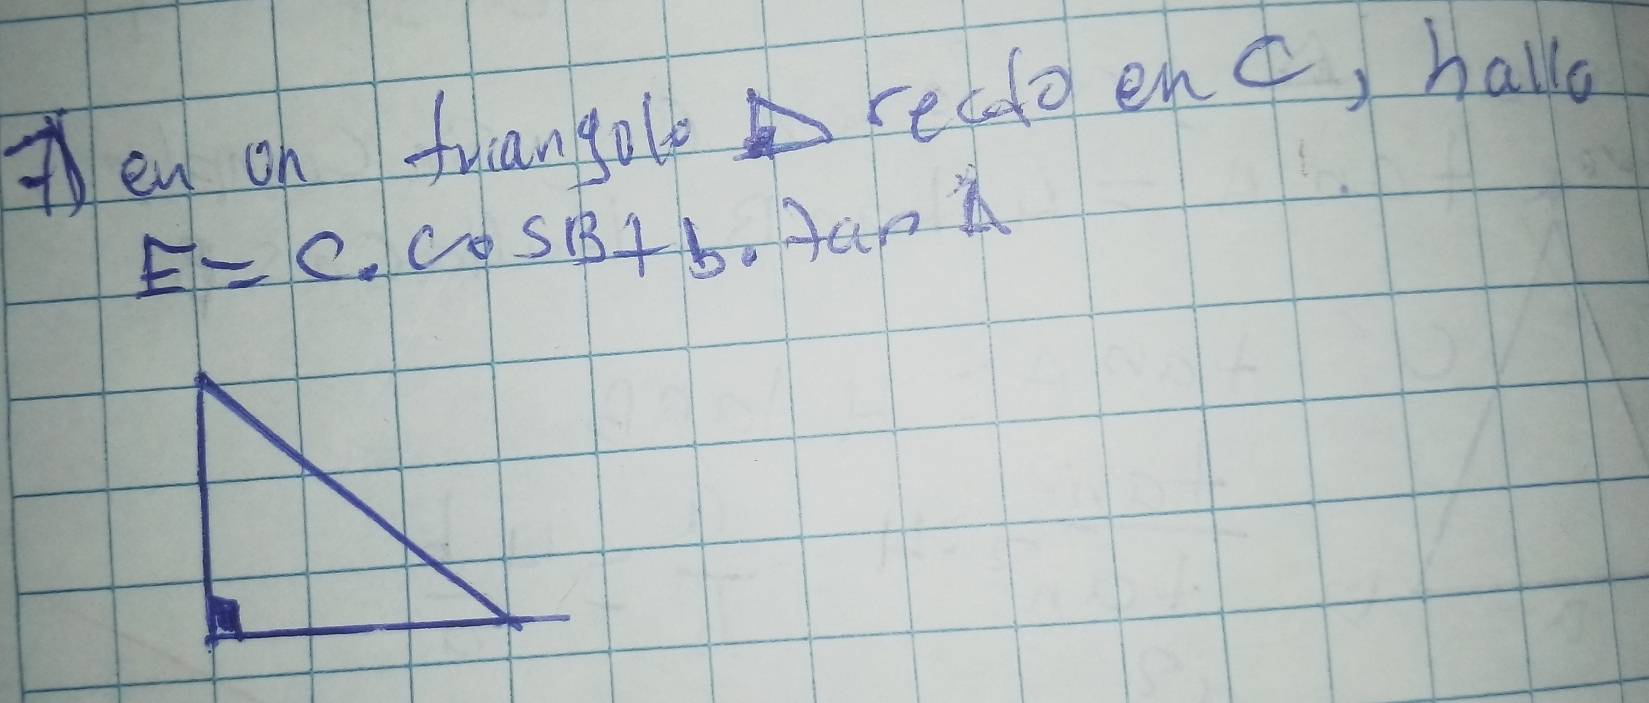 7) en un triangolo recto en C, halla
E = C. Cos B + b. tan A